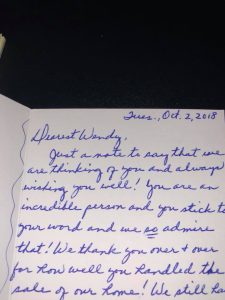 Tues., Oct. 2, 2018
Dearest Wendy,
Just a note to say that we
are thinking of you and always
wishing you well! You are an
incredible person and you stick to
your word and we so admire
that! We thank you over + over
for how well you handled the
sale of our home! We still ha